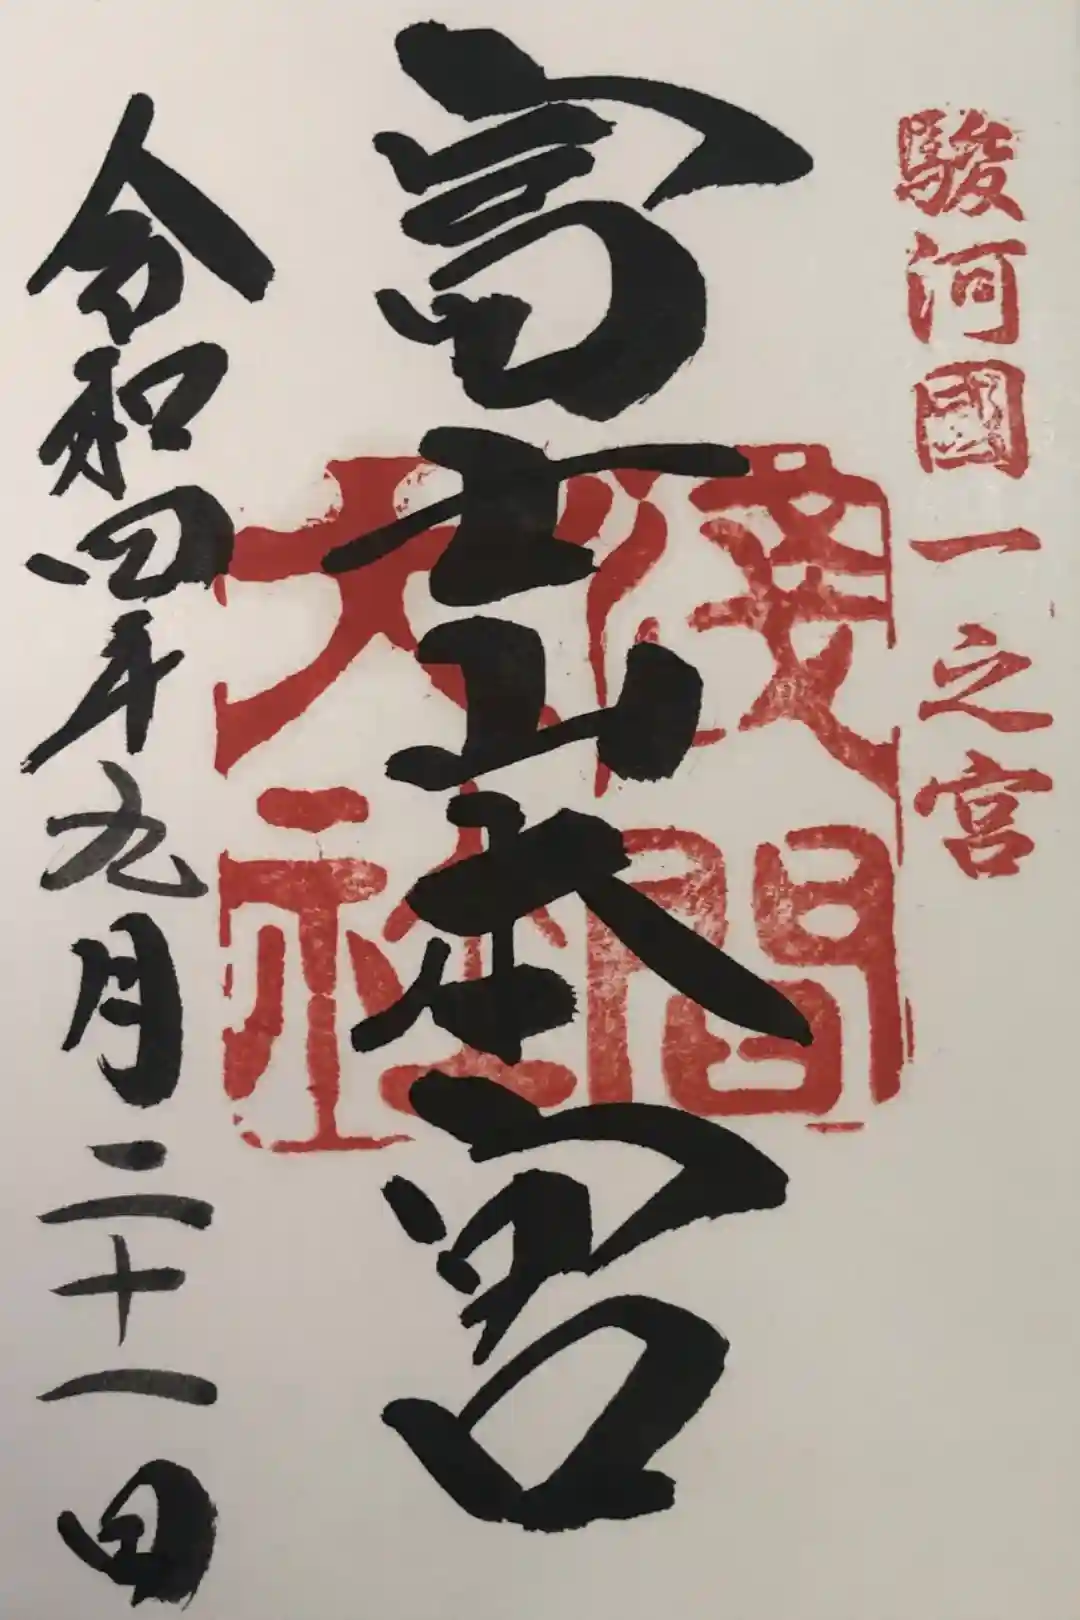 駿河國一之宮
富士山本宮
淺間大社
令和四年九月二十一日